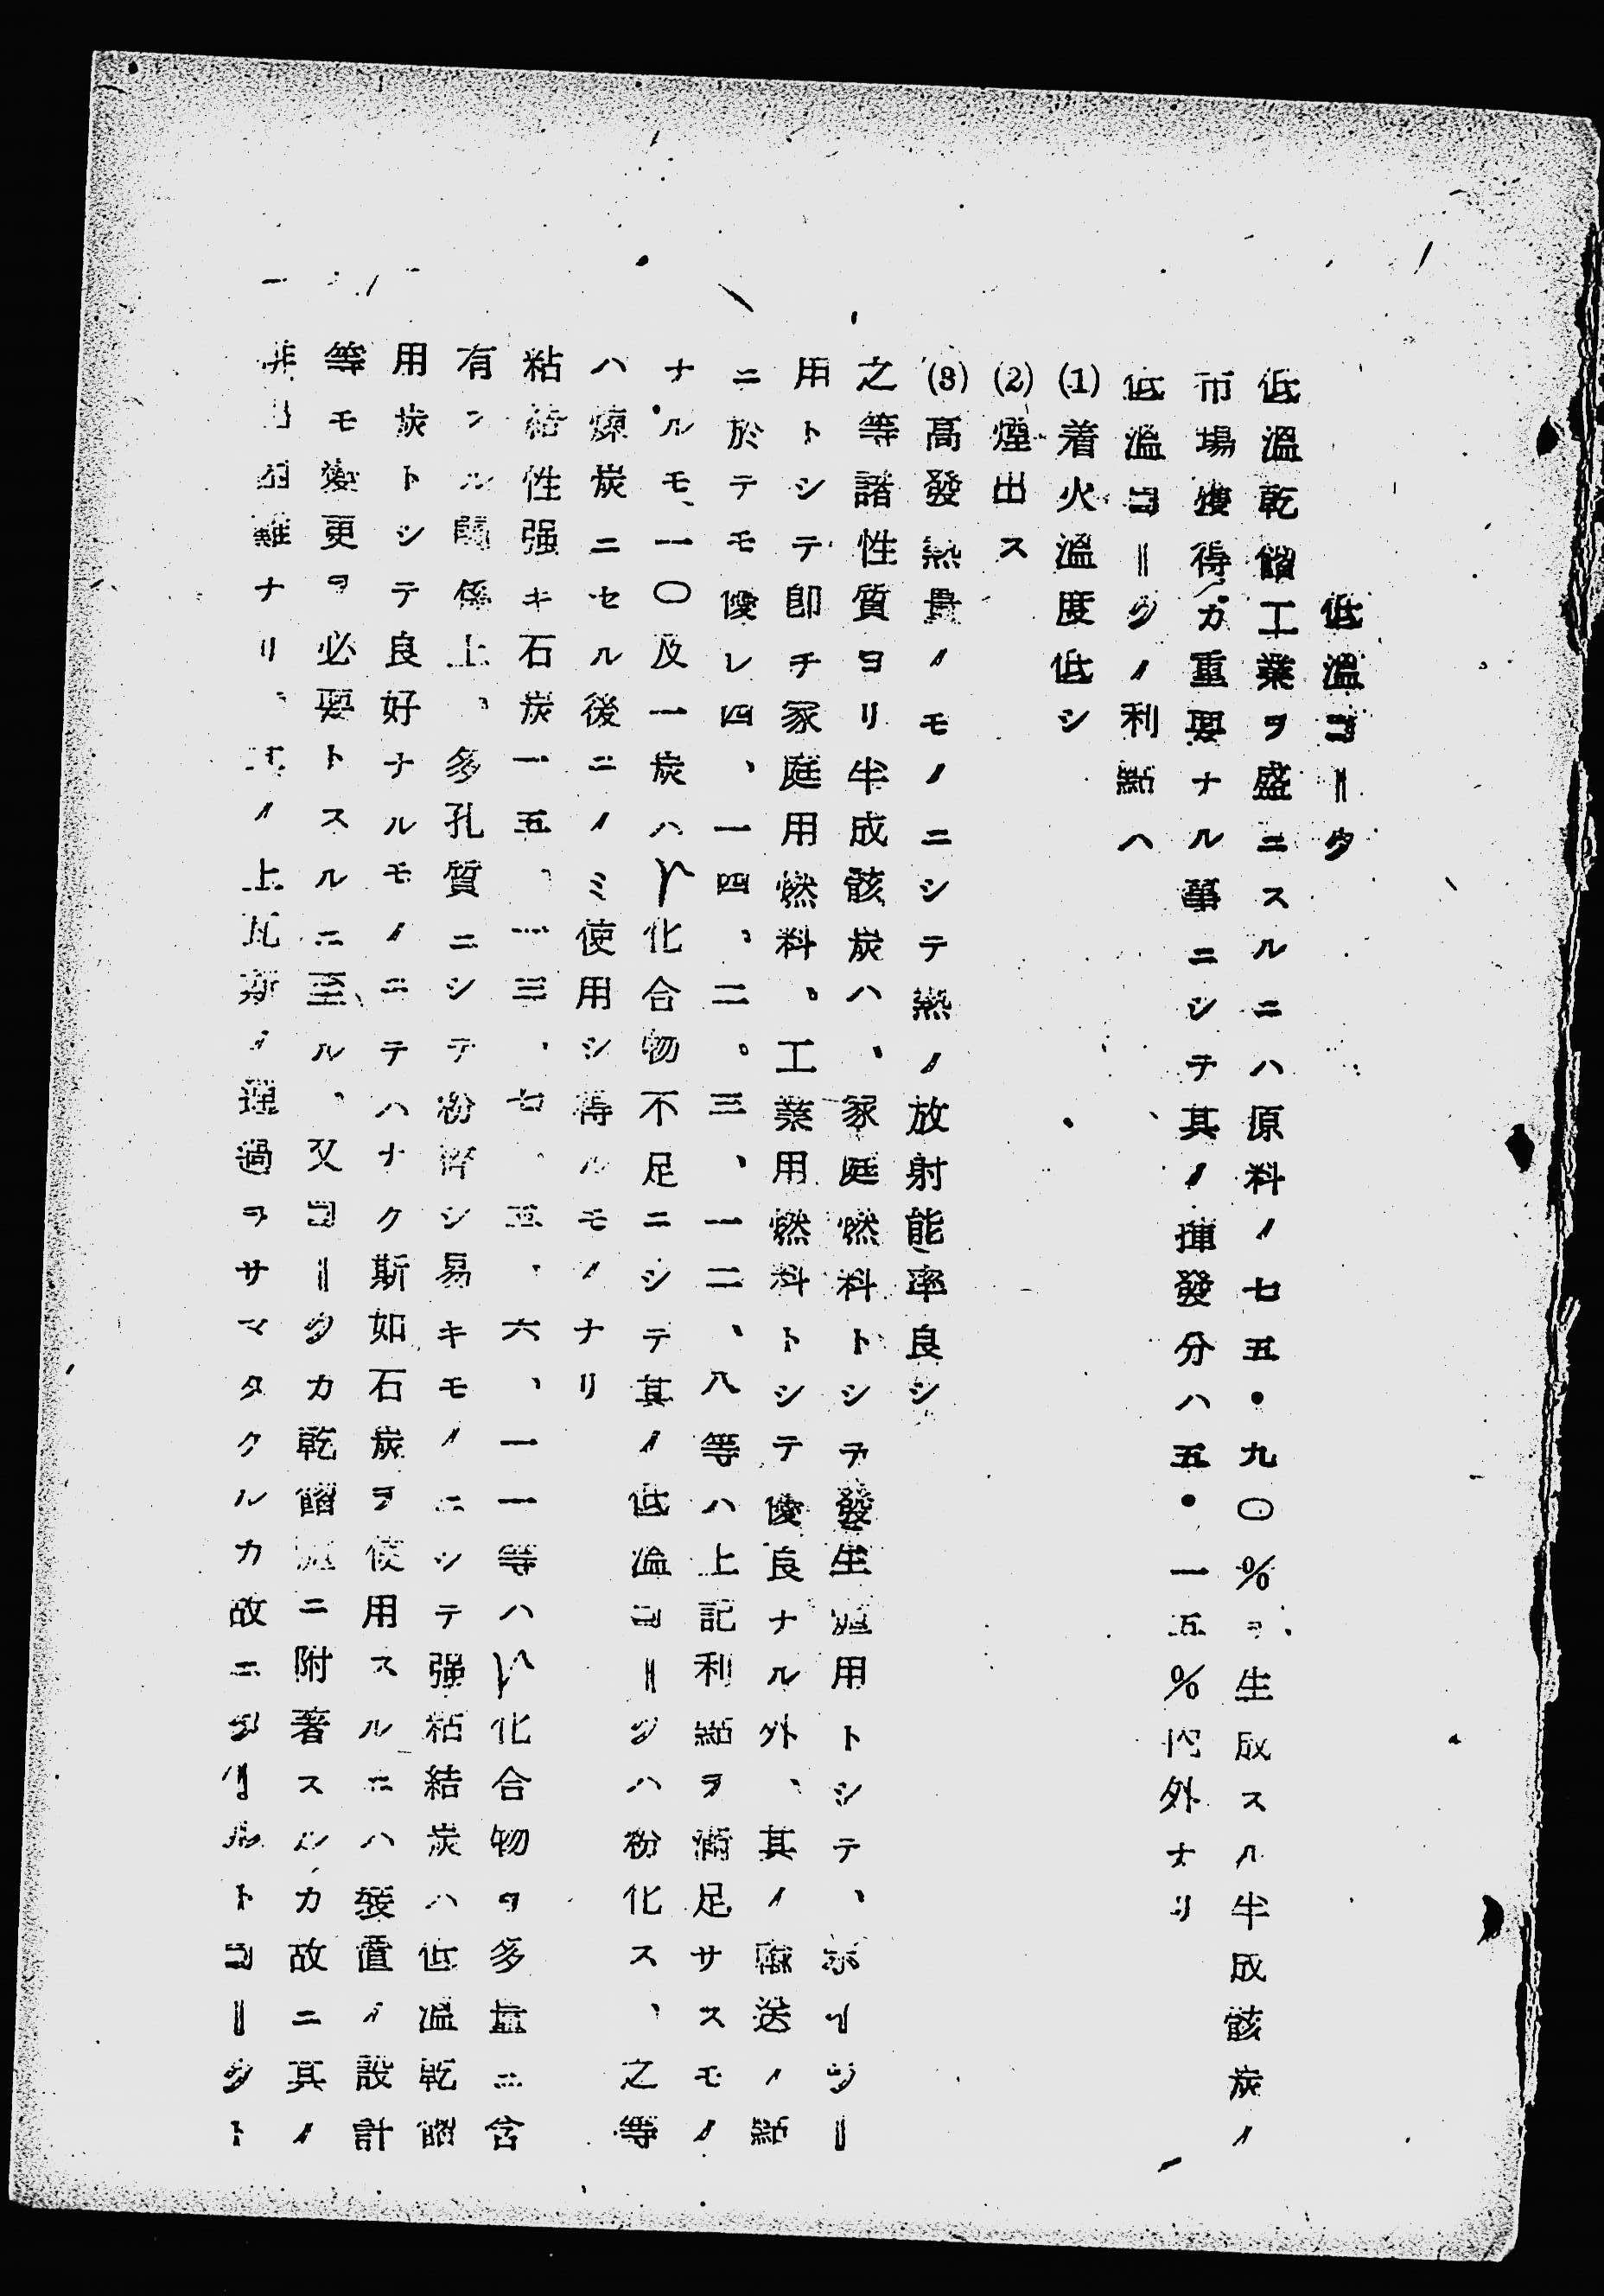 低溫コークタ
低溫乾餾工業ヲ盛ニスルニハ原料ノ七五・九〇%ヲ生成スル半成骸炭ノ
市場獲得カ重要ナル事ニシテ其ノ揮發分ハ五・一五%內外ナリ
低溫コークノ利點ハ
(1)着火溫度低シ
(2)煙出ス
(3)高發熱量ノモノニシテ熱ノ放射能率良シ
之等諸性質ヨリ半成骸炭ハ、家庭燃料トシテ發生爐用トシテ、ボイラー
用トシテ卽チ家庭用燃料、工業用燃料トシテ優良ナル外、其ノ輸送ノ點
ニ於テモ優レ四、一四、二。三、一二、八等ハ上記利點ヲ滿足サスモノ
ナルモ、一〇及一炭ハ化合物不足ニシテ其ノ低溫コークハ粉化ス、之等
ハ煉炭ニセル後ニノミ使用シ得ルモノナリ
粘結性强キ石炭一五、一三、七、五、六、一一等ハ化合物ヲ多量ニ含
有シル關係上、多孔質ニシテ粉碎シ易キモノニシテ强粘結炭ハ低溫乾餾
用炭トシテ良好ナルモノニテハナク斯如石炭ヲ使用スルニハ裝置ノ設計
等モ變更ヲ必要トスルニ至ル、又コークカ乾餾爐ニ附著スルカ故ニ其ノ
非困難ナリ、其ノ上瓦斯ノ通過ヲサマタクルカ故ニタールトコークト